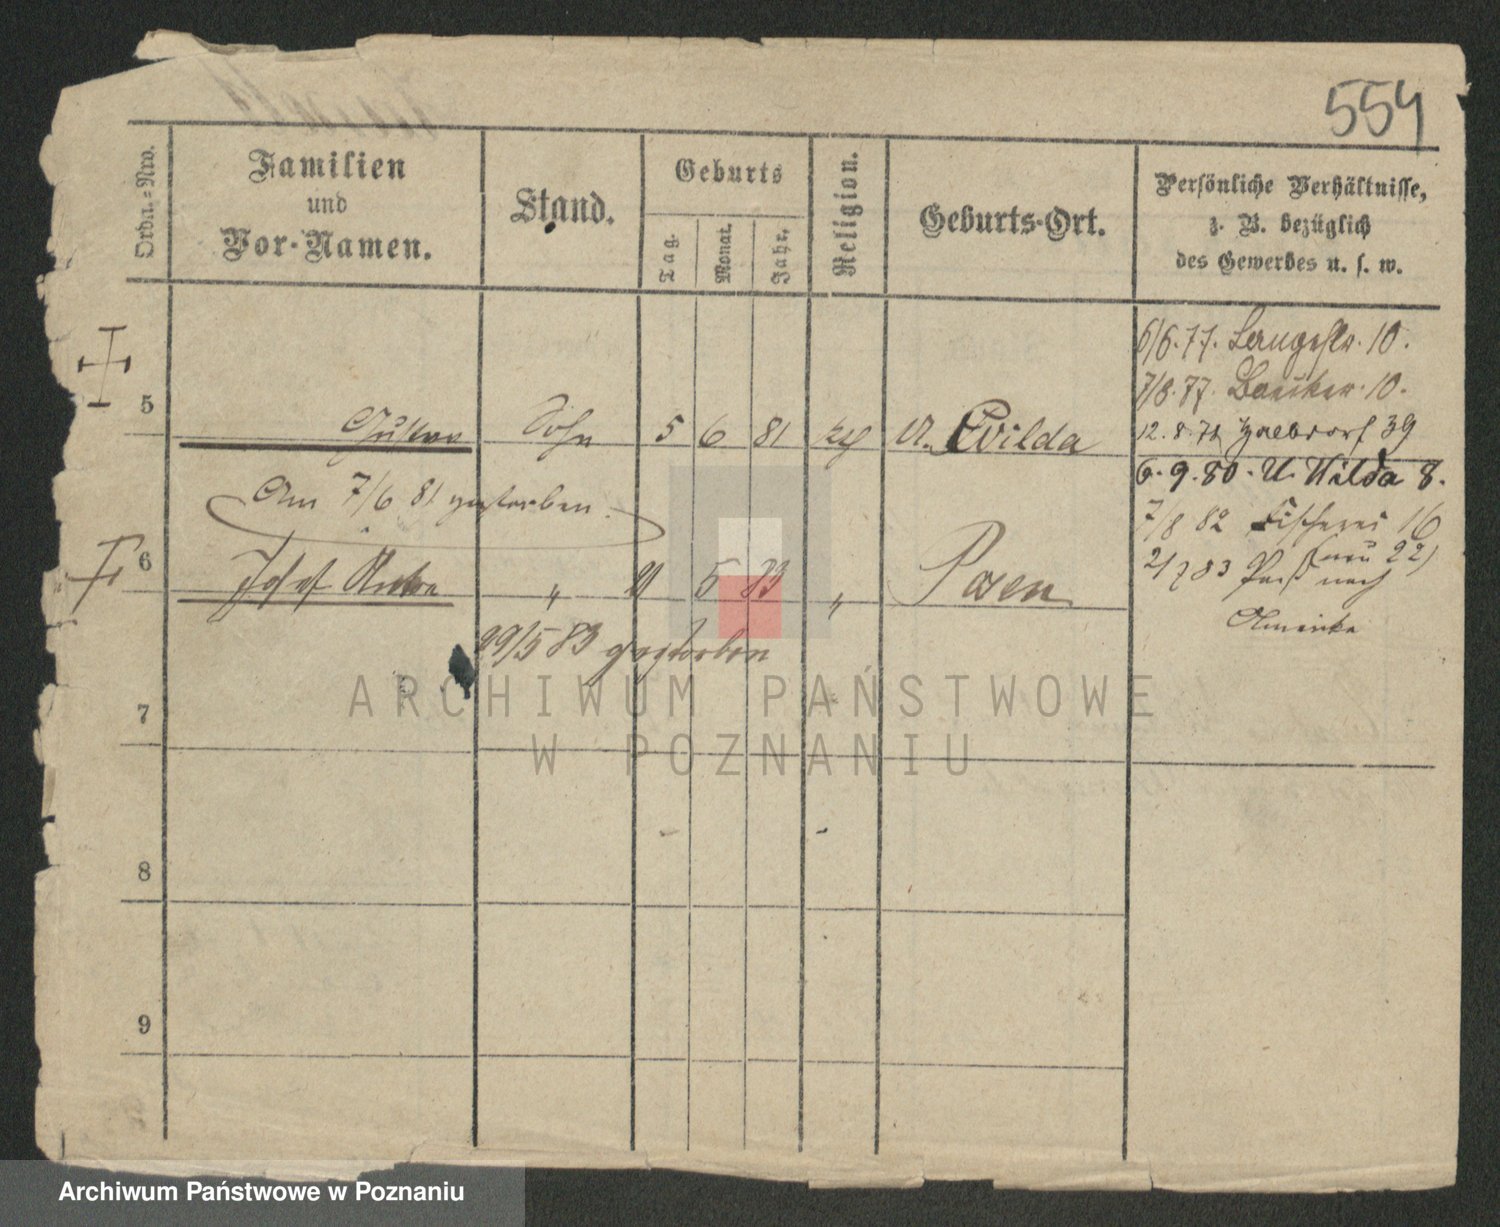 554
Ordn.-Nro.
Familien
und
Vor-Namen.
Stand.
Geburts
Tag.
Monat.
Jahr.
Religion.
Geburts-Ort.
Persönliche Verhältnisse,
z. B. bezüglich
des Gewerbes u. s. w.
6/6. 77. Langestr. 10.
7/8. 77. Baecker. 10.
12. 8. 78 Halbdorf 39
6. 9. 80. U. Wilda 8.
7/8 82 Fischerei 16
(neu 22)
2/7 83 Paß nach
Amerika
5 Gustav Sohn 5 6 81 U. Wilda
Am 7/6 81 gestorben.
6 Josef " 5 83 " Posen
29/5 83 gestorben
7
8
9
ARCHIWUM PAŃSTWOWE
W POZNANIU
Archiwum Państwowe w Poznaniu